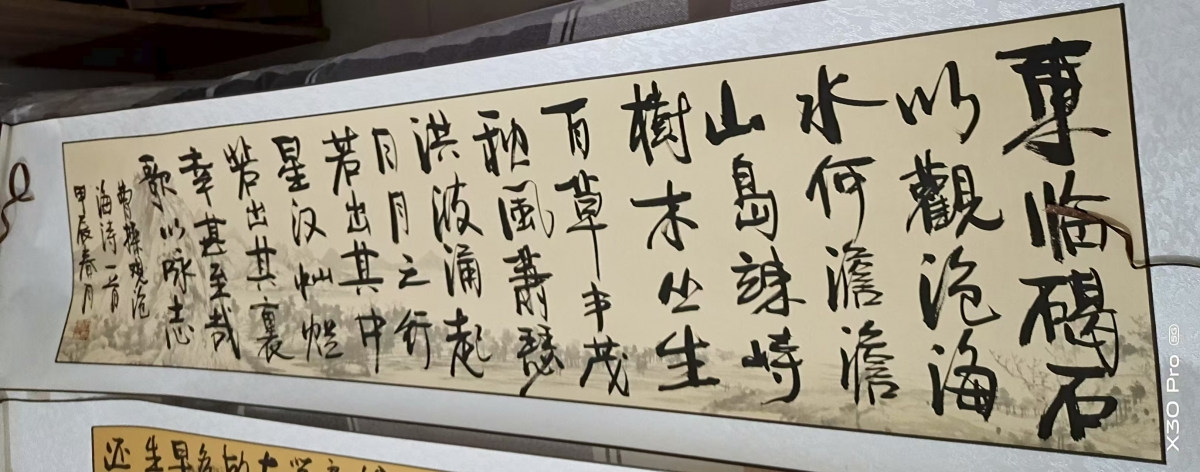 東临碣石
以觀沧海
水何澹澹
山島竦峙
樹木丛生
百草丰茂
秋風蕭瑟
洪波涌起
日月之行
若出其中
星汉灿烂
若出其裏
幸甚至哉
歌以咏志
曹操观沧
海诗一首
甲辰春月
X30 Pro 5G